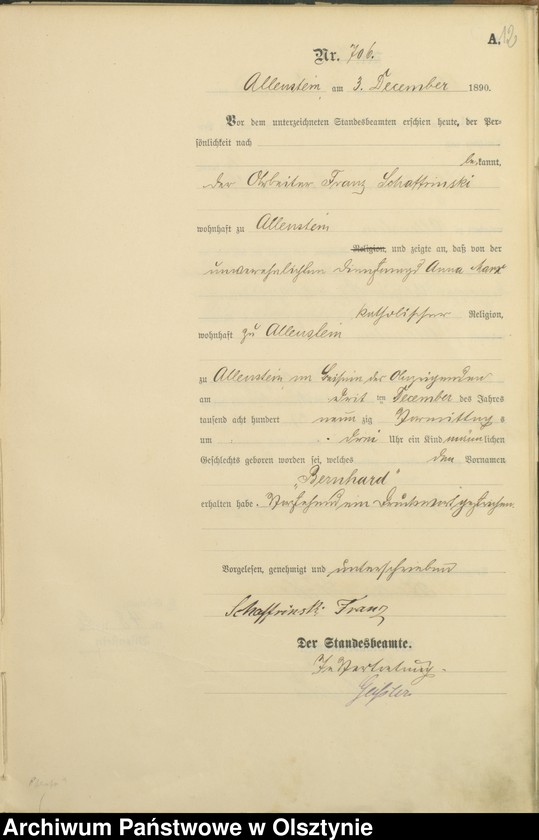 A. 12
Nr. 706.
Allenstein, am 3. December 1890.
Vor dem unterzeichneten Standesbeamten erschien heute, der Per-
sönlichkeit nach
bekannt,
der Arbeiter Franz Schaffrinski
wohnhaft zu Allenstein
Religion, und zeigte an, daß von der
unverehelichten Dienstmagd Anna Marx
katholischer Religion,
wohnhaft zu Allenstein
zu Allenstein im Beisein des Anzeigenden
am drit ten December des Jahres
tausend acht hundert neun zig Vormittags
um drei Uhr ein Kind männlichen
Geschlechts geboren worden sei, welches den Vornamen
„Bernhard"
erhalten habe. Vorstehend ein Druckwort gestrichen.
Vorgelesen, genehmigt und unterschrieben
Schaffrinski Franz
Der Standesbeamte.
In Vertretung.
Archiwum Państwowe w Olsztynie